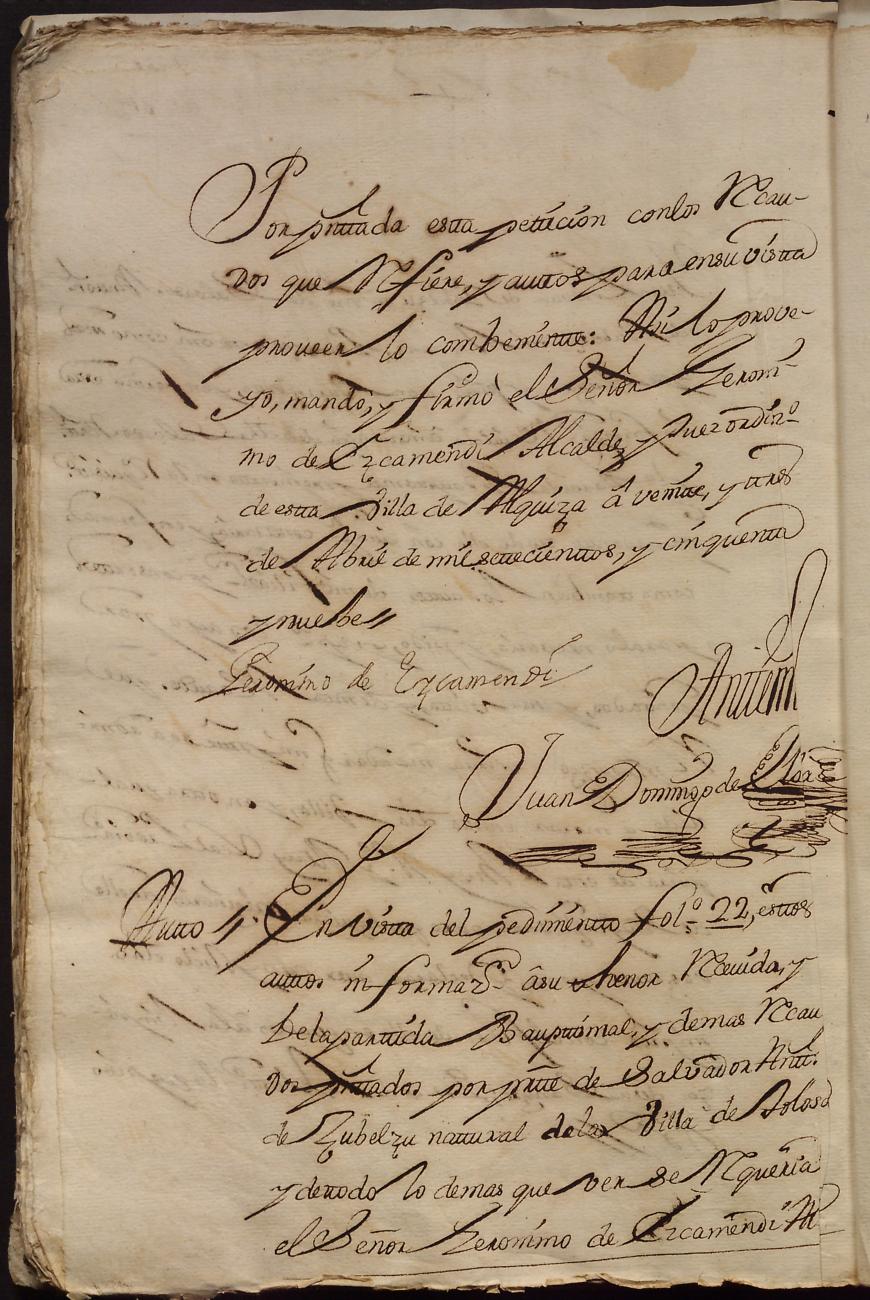 Por pñttada estta petticion con los Recau-
dos que Refiere, y auttos para en su vistta
proveer lo combenientte: Asi lo prove-
yo, mando, y firmò el Señor Geroni-
mo de Ezcamendi Alcalde y Juez ordinº
de estta Villa de Alquiza â veintte, y ttres
de Abril de mil settecienttos, y cinquentta
y nuebe
Geronimo de Ezcamendi
Antte mi
Juan Domingo de
Autto En Vistta del pedimientto folº 22, esttos
auttos informazⁿ â su thenor Recivida, y
de la parttida Bapttismal, y demas Recau
dos pñttados por partte de Salvador Antt.
de Zubelzu nattural de la Villa de Tolosa
y de ttodo lo demas que ver se Requeria
el Señor Geronimo de Ezcamendi Al-